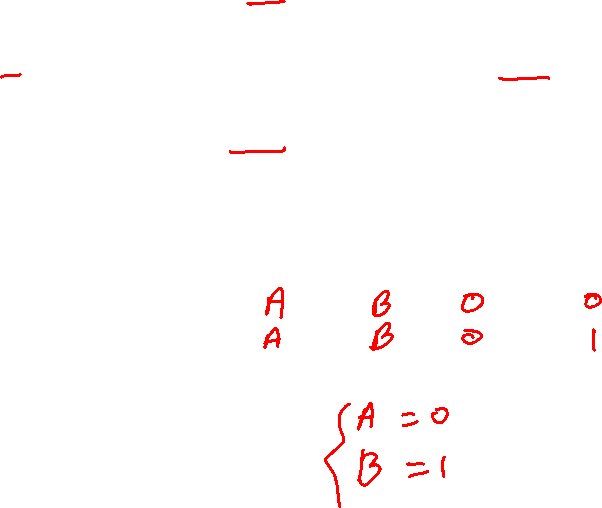 A B 0 0
A B 0 1
A = 0
B = 1